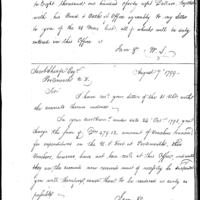 to Eight thousand one hundred forty eight Dollars, together
with his Bond & Oaths of Office agreeably to my letter
to you of the 24 Mar: last; all of which will be duly
entered in this Office
I am &c W. S.
Jacob Sheafe Esq:
Portsmouth N. H.
August 7th 1799.
Sir
I have rec'd your letter of the 31 ulto with
the accounts therein
In your under date 24th Oct: 1798, you
charge the sum of Dos 479.12. amount of Vouchers
for expenditures on the U S at Portsmouth, these
Vouchers, however have not been rec'd at this Office, and until
they are the accounts now received must of necessity be suspended
you will therefore, cause them to be rendered as early as
possible
I am